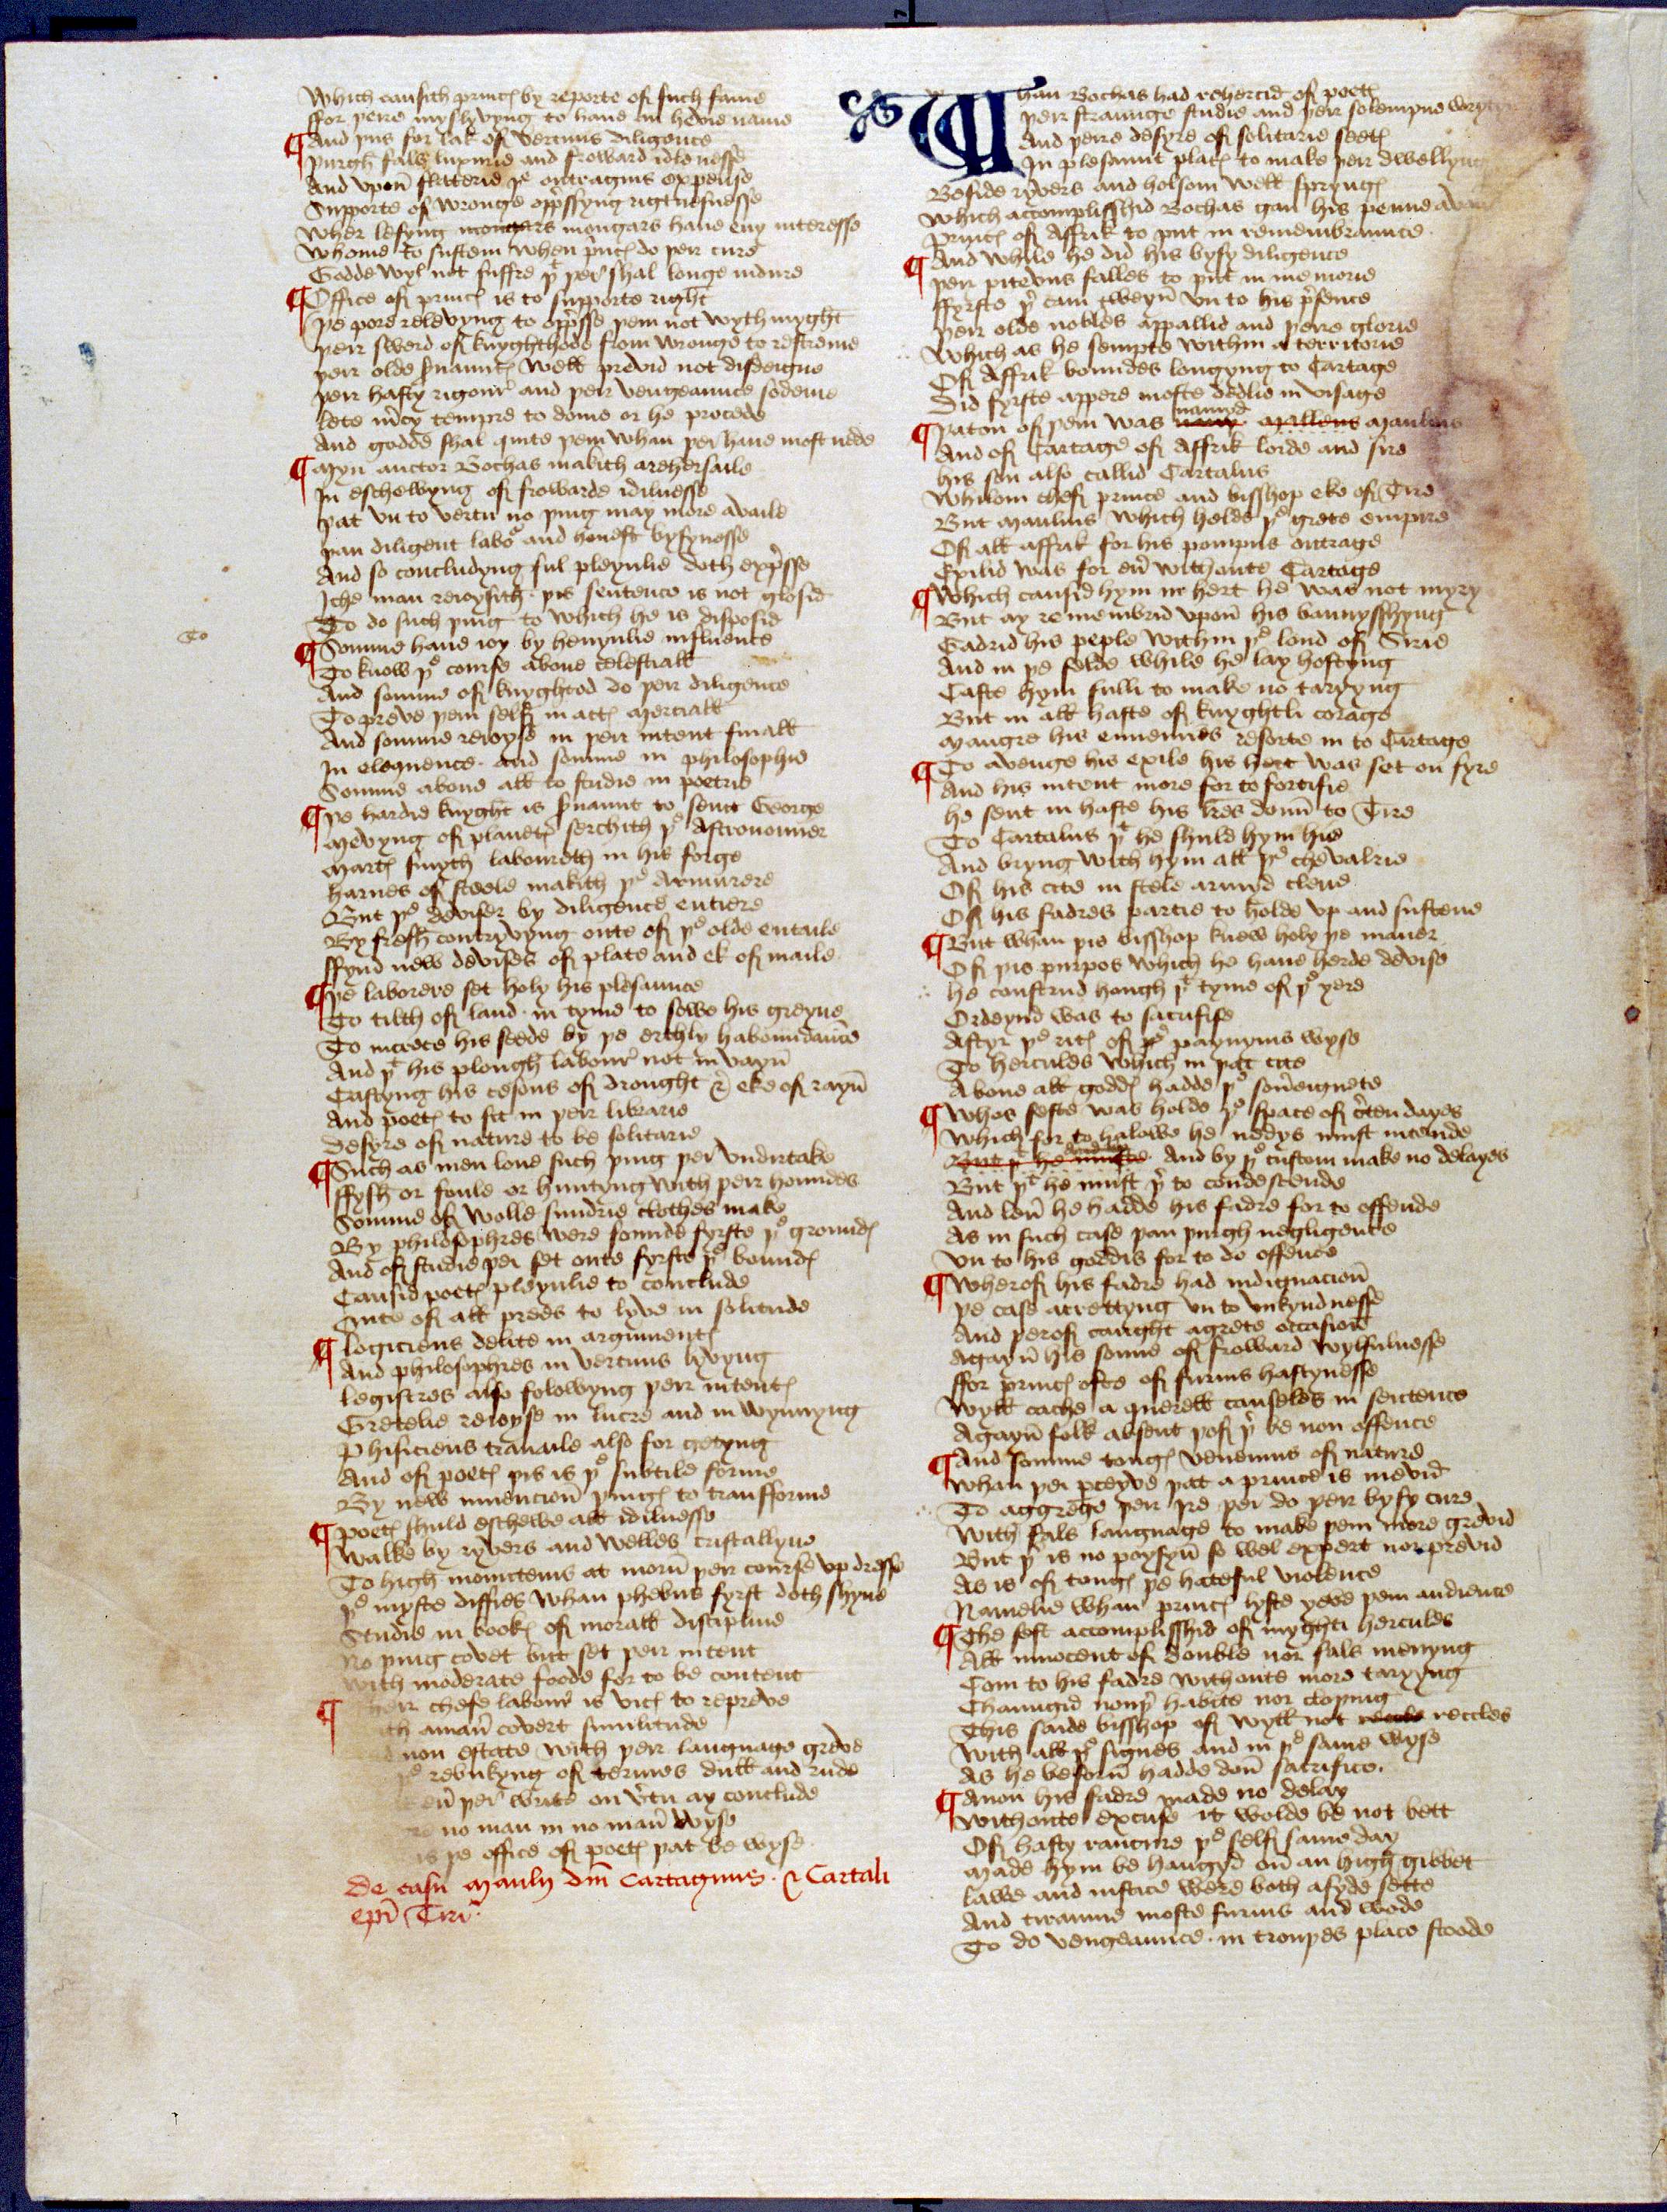 Which causith princꝭ by reporte of such fame
ffor þeire myslyvyng to haue an hevie name
¶ And þus for lak of vertuus diligence
þurgh fals luxurie and froward idle nesse
And vpon̄ flaterie þe outragius expense
Supporte of wronge opp̄ssyng rigtuisnesse
Wher lesyng mongars haue eny interesse
Whome to sustem when p̄ncꝭ do þeir cure
Godde wyl not suffre þᵗ þei shal longe indure
¶ Office of princꝭ is to supporte right
Þe pore relevyng to opp̄sse þem not wyth myght
Þeir swerd of knyghthode from wronge to restreine
Þeir olde s̄uauntꝭ well previd not disdeigne
Þeir hasty rigour and þeir vengeaunce sodeine
Lete m̄cy tempre to dome or he procede
And godde shal quite þem whan þei haue most nede
¶ Myn auctor Bochas makith a rehersaile
In eschewyng of frowarde idilnesse
Þat vn to vertu no þing may more availe
Þan diligent laboᵘ and honest bysynesse
And so concludyng ful pleynlie doth exp̄sse
Iche man reioysith þis sentence is not glosid
To do such þing to which he is disposid
To
¶ Somme haue ioy by heuynlie influence
To know þᵉ course aboue celestiall
And somme of knyghtod do þeir diligence
To preve þem self in actꝭ Merciall
And somme reioyse in þeir intent finall
In eloquence and somme in philosophie
Somme aboue all to studie in poetrie
¶ Þe hardie knyght is s̄uaunt to seint George
Mevyng of planetꝭ serchith þᵉ Astronomier
Martꝭ smyth laboureth in his forge
Harnes of steele makith þᵉ Armurere
But þᵉ deviser by diligence entiere
By fressh contryvyng oute of þᵉ olde entaile
ffynd new devises of plate and ek of maile
¶ Þe laborere set holy his plesaunce
To tilth of land in tyme to sowe his greyne
To increce his seede by þe erthly haboundaūce
And þᵗ his plough labour not in vayn̄
Castyng his cesons of drought & eke of rayn̄
And poetꝭ to sit in þeir librarie
Desyre of nature to be solitarie
¶ Such as men loue such þing þei vndirtake
ffyssh or foule or huntyng with þeir houndes
Somme of wolle sundrie clothes make
By philosophres were founde fyrste þᵉ groundꝭ
And of studie þei set oute fyrste þᵉ boundꝭ
Causid poetꝭ pleynlie to conclude
Oute of all prees to lyve in solitude
¶ Logiciens delite in argumentꝭ
And philosophres in vertuus lyvyng
Legistres also folowyng þeir intentꝭ
Gretelie reioyse in lucre and in wynnyng
Phisiciens trauaile also for getyng
And of poetꝭ þis is þᵉ subtile forme
By new inuencion̄ þingꝭ to transforme
¶ Poetꝭ shuld eschewe all idilnesse
Walke by ryvers and welles cristallyne
To high mounteins at morn̄ þeir course vp dresse
Þᵉ myste diffies whan phebus fyrst doth shyne
Studie in bookꝭ of morall discipline
No þing covet but set þeir intent
With moderate foode for to be content
¶ Their chefe labour is vicꝭ to repreve
ith a man̄ covert similitude
non estate with þeir language greve
þᵉ rebukyng of termes dull and rude
þei write on v̄tu ay conclude
no man in no man̄ wyse
is þe office of poetꝭ þat be wyse
De casu Maulij dn̄i Cartaginis · & Cartali
ep̄i Tiri

Whan Bochas had rehercid of poetꝭ
Þeir straunge studie and þeir solempne
And þeire desyre of solitarie seetꝭ
In plesaunt placꝭ to make þeir dwellyng
Beside ryvers and holsom well spryngꝭ
Which accomplisshid Bochas gan his penne
Princꝭ of Affrik to put in remembraunce
¶ And while he did his bysy diligence
Þeir pitevus falles to put in memorie
ffyrste þ̄ cam tweyn̄ vn to his p̄sence
Þeir olde nobles appallid and þeire glorie
Which as he sempte within a territorie
Of Affrik boundes longyng to Cartage
Did fyrste appere moste dedlie in visage
¶ Þaton of þem was named Maulius
And of Cartage of Affrik lorde and sire
His son also callid Cartalus
Whilom chef prince and bisshop eke of Tire
But Maulius which helde þᵉ grete empire
Of all affrik for his pompus outrage
Exilid was for eū withoute Cartage
¶ Which causid hym in hert he was not myry
But ay remembrid vpon̄ his bannysshyng
Gadrid his peple within þᵉ lond of Sirie
And in þe felde while he lay hostyng
Caste hym fulli to make no taryyng
But in all haste of knyghtli corage
Maugre his ennemies resorte in to Cartage
¶ To avenge his exile his hert was set on fyre
And his intent more for to fortifie
He sent in haste his lr̄es doun̄ to Tire
To Cartalus þᵗ he shuld hym hie
And bryng with hym all þᵉ chevalrie
Of his cite in stele armyd clene
Of his fadres partie to holde vp and sustene
¶ But whan þis bisshop knew holy þe maner
Of þis purpos which he haue herde devise
He construd hough þᵗ tyme of þᵉ yere
Ordeynd was to sacrifise
Aftyr þᵉ ritꝭ of þᵉ paynyms wyse
To Herculdes which in þat cite
Aboue all goddꝭ hadde þᵉ soūeignete
¶ Whos feste was holde þᵉ space of c̄ten dayes
Which for to halowe he nedys must intende
But þᵗ he muste And by þᵉ custom make no delayes
But þᵗ he must þ̄ to condescende
And leū he hadde his fadre for to offende
As in such case þan þurgh negligence
Vn to his goddis for to do offence
¶ Wherof his fadre had indignacion̄
Þe case arrettyng vn to vnkyndnesse
And þerof caught a grete occasion̄
Agayn̄ his sonne of froward wylfulnesse
ffor princꝭ ofte of furius hastynesse
Wyll cache a querell causeles in sentence
Agayn̄ folk absent þof þ̄ be non offence
¶ And somme tongꝭ venemus of nature
Whan þei p̄ceyve þat a prince is mevid
To aggrege þeir ire þei do þeir bysy cure
With fals language to make þem more grevid
But þ̄ is no poysyn̄ so wel expert nor previd
As is of tongꝭ þe hateful violence
Namelie whan princꝭ lyste yeve þem audience
¶ The fest accomplisshid of myghti Hercules
All innocent of double nor fals menyng
Com to his fadre withoute more taryyng
Chaungid nouþ̄ habite nor cloþing
This saide bisshop of wyll not reccles
With all þᵉ signes and in þᵉ same wyse
As he beforn̄ hadde don̄ sacrifice.
¶ Anon his fadre made no delay
Withoute excuse it wolde be not bett
Of hasty rancure þᵉ self same day
Made hym be hangyd on̄ an high gibbet
Lawe and iustice were both asyde sette
And tirannie moste furius and wode
To do vengeaunce in trouþes place stoode